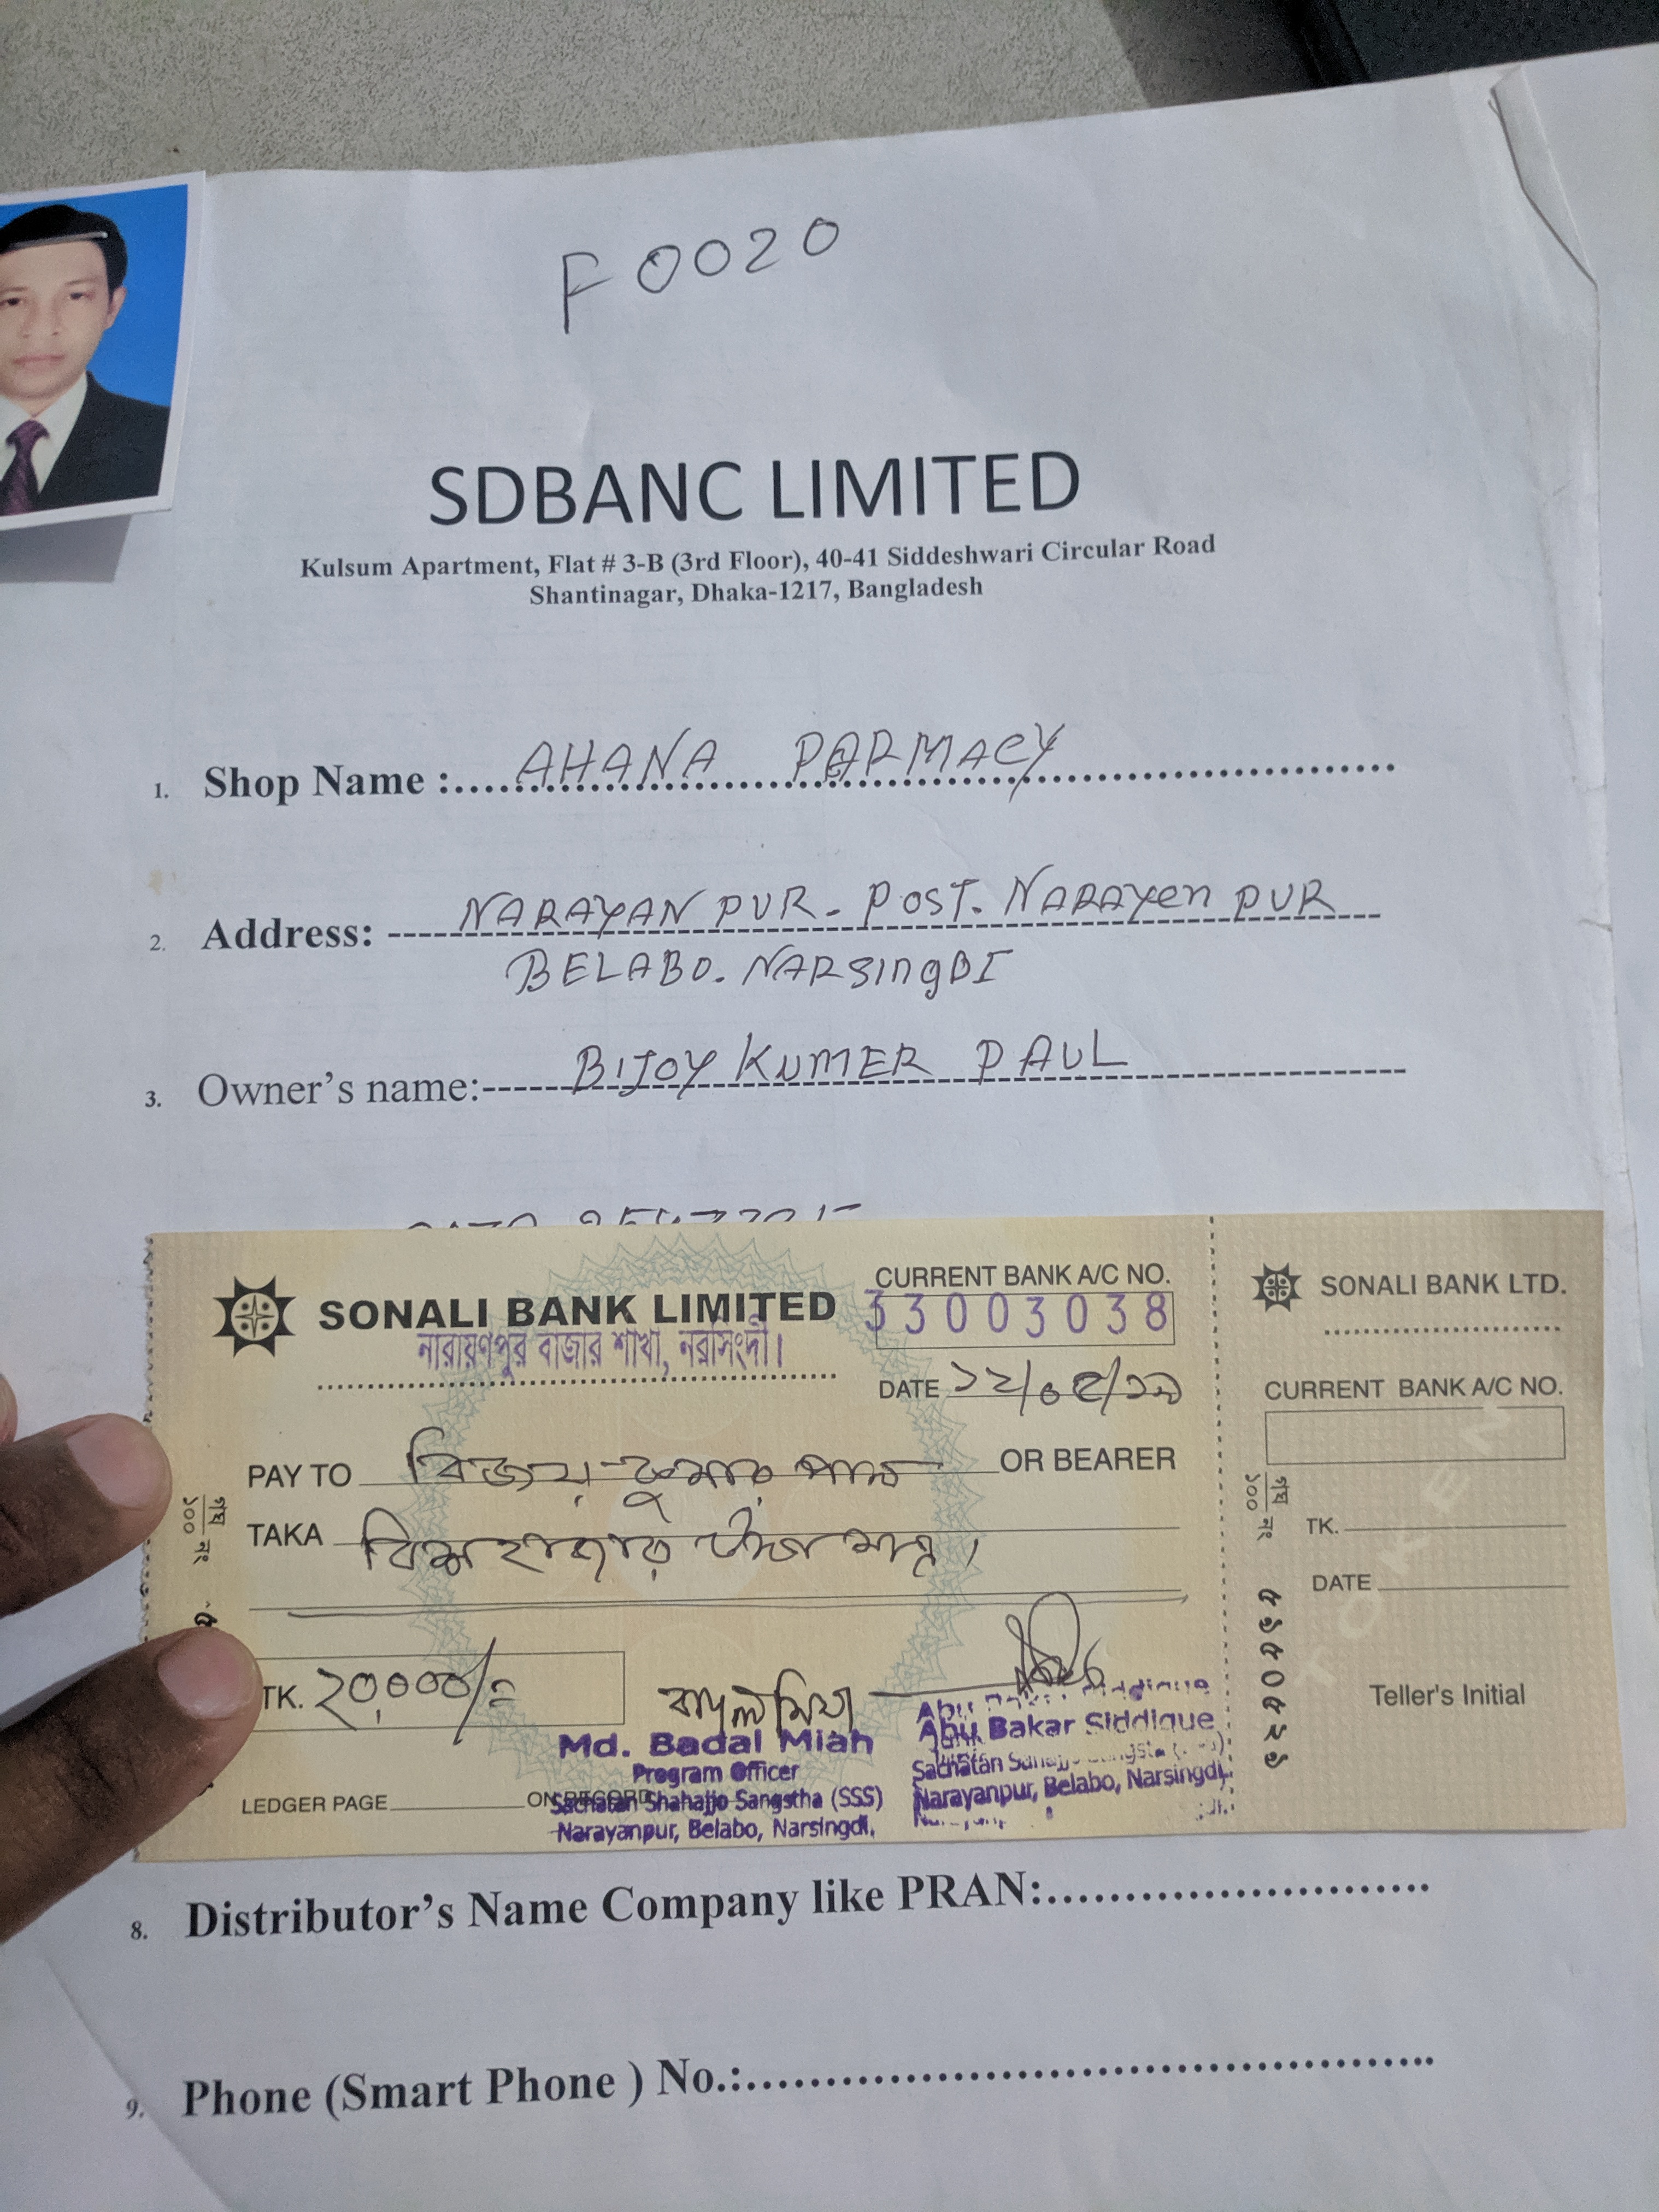 F0020
SDBANC LIMITED
Kulsum Apartment, Flat # 3-B (3rd Floor), 40-41 Siddeshwari Circular Road
Shantinagar, Dhaka-1217, Bangladesh
1. Shop Name :.... AHANA PARMACY
2. Address: NARAYANPUR- POST. NARAYenPUR
BELABO. NARSingDI
3. Owner's name: BIJOY KUMER PAUL
SONALI BANK LIMITED
নারায়ণপুর বাজার শাখা, নরসিংদী।
CURRENT BANK A/C NO.
33003038
DATE ১২/০৫/১৯
PAY TO বিজয় কুমার পাল OR BEARER
TAKA বিশ হাজার টাকা মাত্র।
TK. ২০,০০০/=
বাদল মিয়া
Md. Badal Miah
Program Officer
Sachatan Shahajjo Sangstha (SSS)
Narayanpur, Belabo, Narsingdi.
Abu Bakar Siddique
Sachatan
Narayanpur, Belabo, Narsingdi.
LEDGER PAGE
SONALI BANK LTD.
CURRENT BANK A/C NO.
TOKEN
TK.
DATE
Teller's Initial
8. Distributor's Name Company like PRAN:
9. Phone (Smart Phone ) No.: